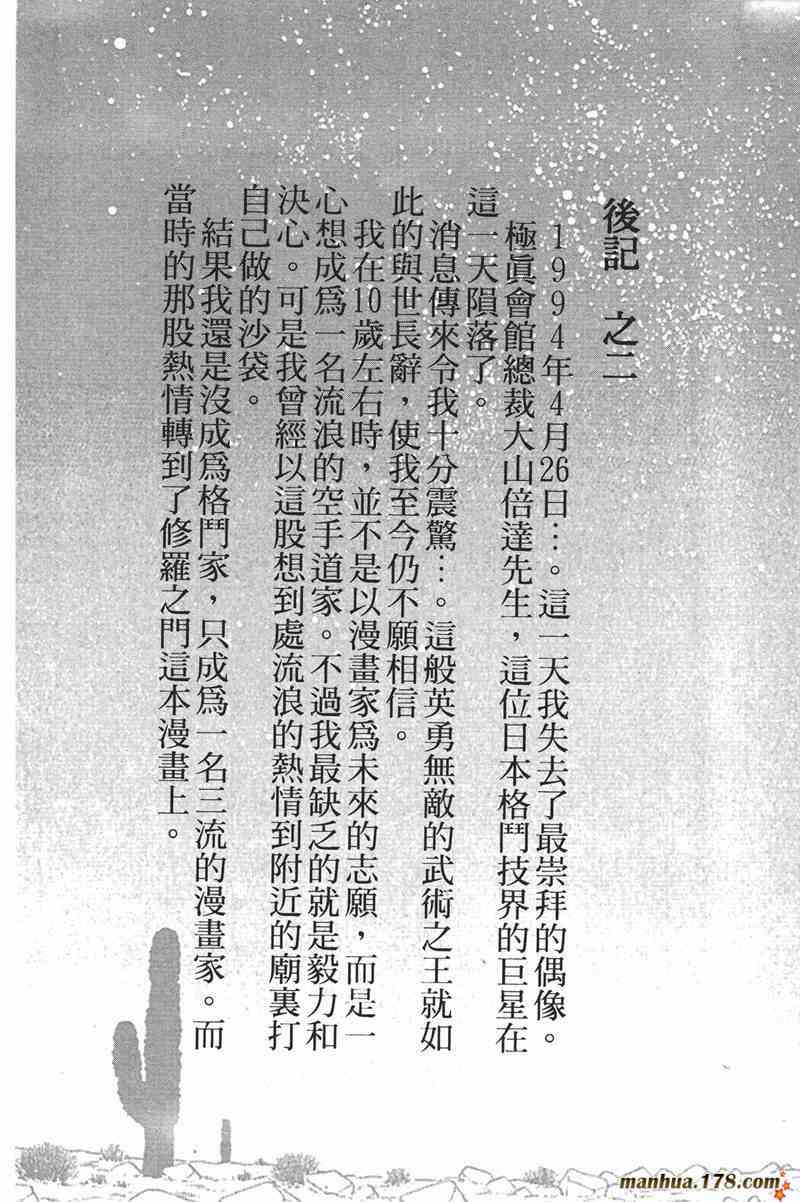 後記　之二
1994年4月26日…。這一天我失去了最崇拜的偶像。
極眞會館總裁大山倍達先生，這位日本格鬥技界的巨星在
這一天隕落了。
消息傳來令我十分震驚…。這般英勇無敵的武術之王就如
此的與世長辭，使我至今仍不願相信。
我在10歲左右時，並不是以漫畫家爲未來的志願，而是一
心想成爲一名流浪的空手道家。不過我最缺乏的就是毅力和
決心。可是我曾經以這股想到處流浪的熱情到附近的廟裏打
自己做的沙袋。
結果我還是沒成爲格鬥家，只成爲一名三流的漫畫家。而
當時的那股熱情轉到了修羅之門這本漫畫上。
manhua.178.com